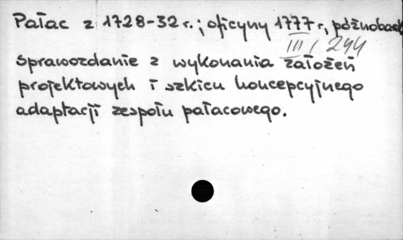 Pałac z 1728-32 r.; oficyny 1777 r, późnobarok
III / 244
sprawozdanie z wykonania założeń
projektowych i szkicu koncepcyjnego
adaptacji zespołu pałacowego.